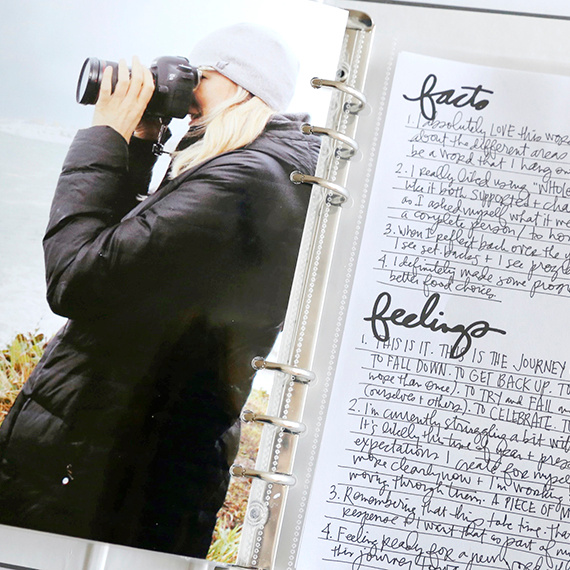 facts
1. I absolutely LOVE this word
about the different areas
be a word that I hang on
2. I really liked using "WHOLE
like it both SUPPORTED + cha
as I asked myself what it me
a complete person / to ho
3. when I reflect back over the y
I see set backs + I see progre
4. I definitely made some prog
better food choices.
feelings
1. THIS IS IT. THIS IS THE JOURNEY
TO FALL DOWN. TO GET BACK UP. TO
more than once). TO TRY and FAIL an
(ourselves + others). TO CELEBRATE. T
2. I'm currently struggling a bit wit
It's likely the time of year + pres
expectations I create for myse
more clearly now + I'm working
moving through them. A PIECE OF M
3. Remembering that this take time. Ther
response I want that so part of m
4. Feeling ready for a new word. W
this journey